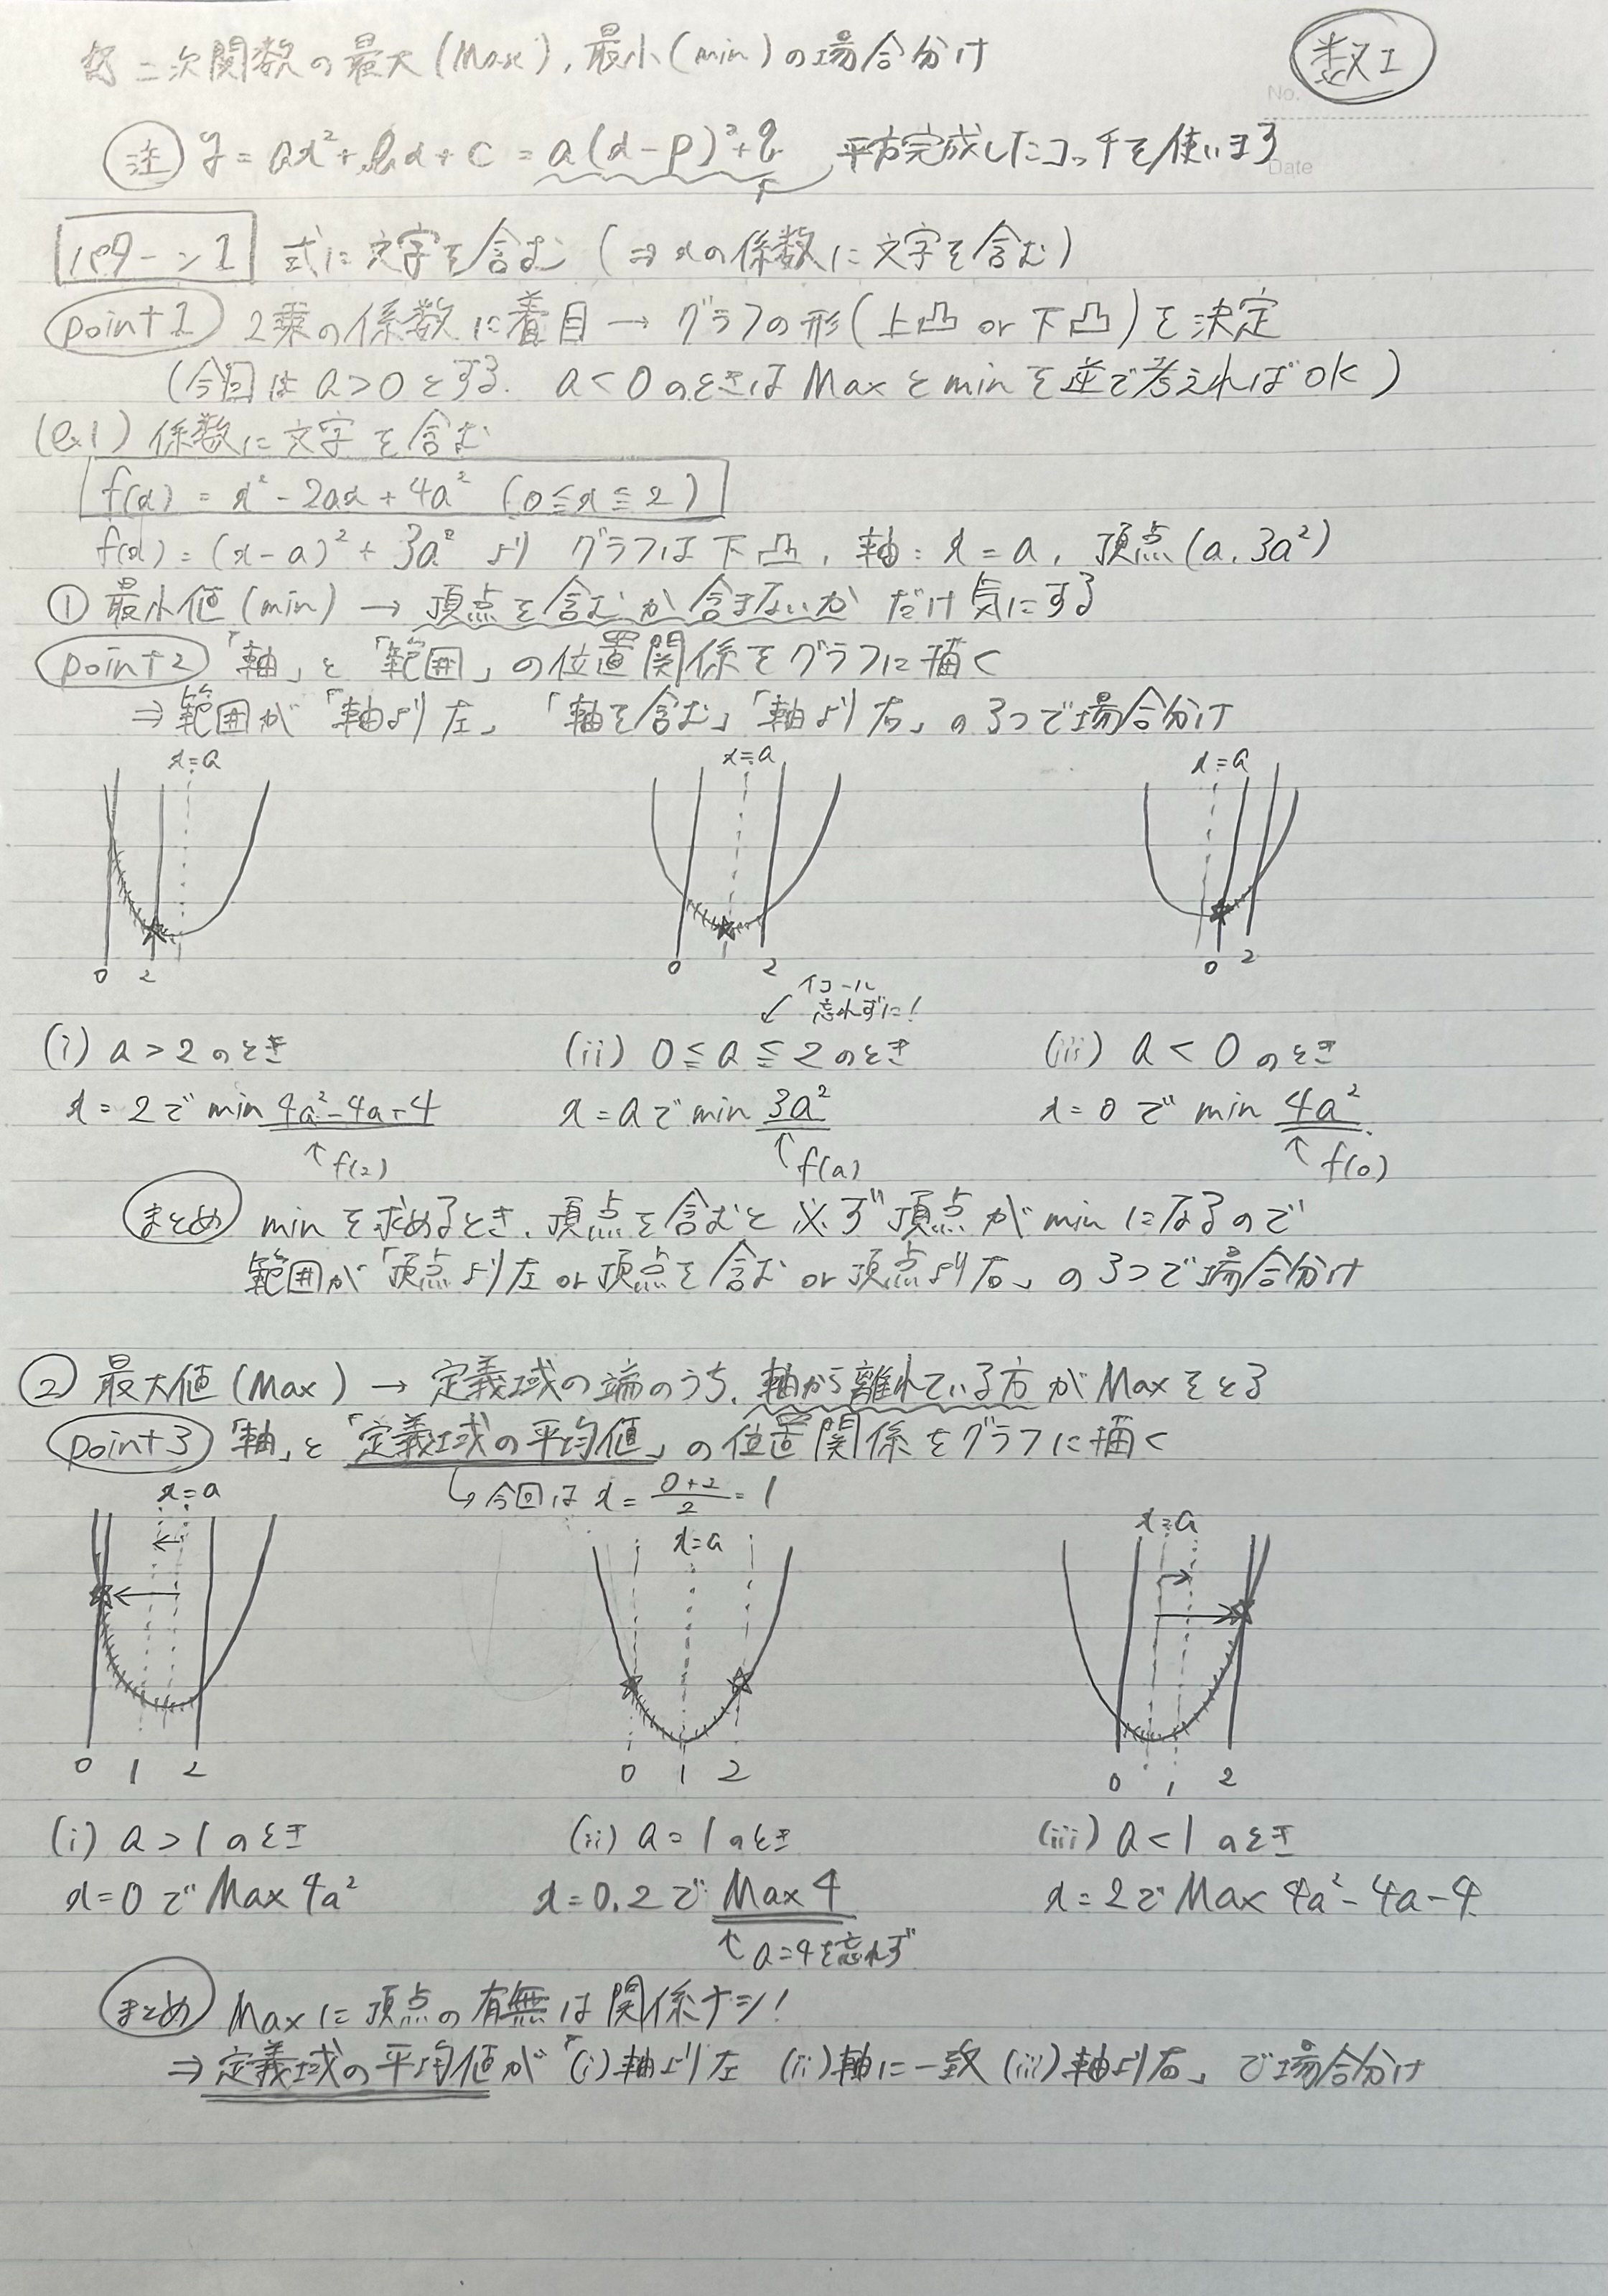 二次関数の最大(Max),最小(min)の場合分け
数I
No.
Date
注 y=ax²+bx+c=a(x-p)²+q 平方完成したコッチを使います
パターン1 式に文字を含む(⇒xの係数に文字を含む)
point1 2乗の係数に着目→グラフの形(上凸or下凸)を決定
(今回はa>0とする. a<0のときはMaxとminを逆で考えればOK)
(e.1) 係数に文字を含む
f(x)=x²-2ax+4a² (0≦x≦2)
f(x)=(x-a)²+3a²より グラフは下凸, 軸:x=a, 頂点(a, 3a²)
① 最小値(min)→頂点を含むか含まないかだけ気にする
point2 「軸」と「範囲」の位置関係をグラフに描く
⇒範囲が「軸より左」「軸を含む」「軸より右」の3つで場合分け
x=a x=a x=a
0 2 0 2 0 2
イコール
忘れずに!
(i) a>2のとき (ii) 0≦a≦2のとき (iii) a<0のとき
x=2でmin 4a²-4a-4 x=aでmin 3a² x=0でmin 4a²
↑f(2) ↑f(a) ↑f(0)
まとめ minを求めるとき、頂点を含むと必ず頂点がminになるので
範囲が「頂点より左or頂点を含むor頂点より右」の3つで場合分け
② 最大値(Max)→定義域の端のうち、軸から離れている方がMaxをとる
point3 「軸」と「定義域の平均値」の位置関係をグラフに描く
↳今回はx=(0+2)/2=1
x=a x=a x=a
0 1 2 0 1 2 0 1 2
(i) a>1のとき (ii) a=1のとき (iii) a<1のとき
x=0でMax 4a² x=0,2でMax 4 x=2でMax 4a²-4a-4
↑a=4を忘れず
まとめ Maxに頂点の有無は関係ナシ!
⇒定義域の平均値が「(i)軸より左 (ii)軸に一致 (iii)軸より右」で場合分け